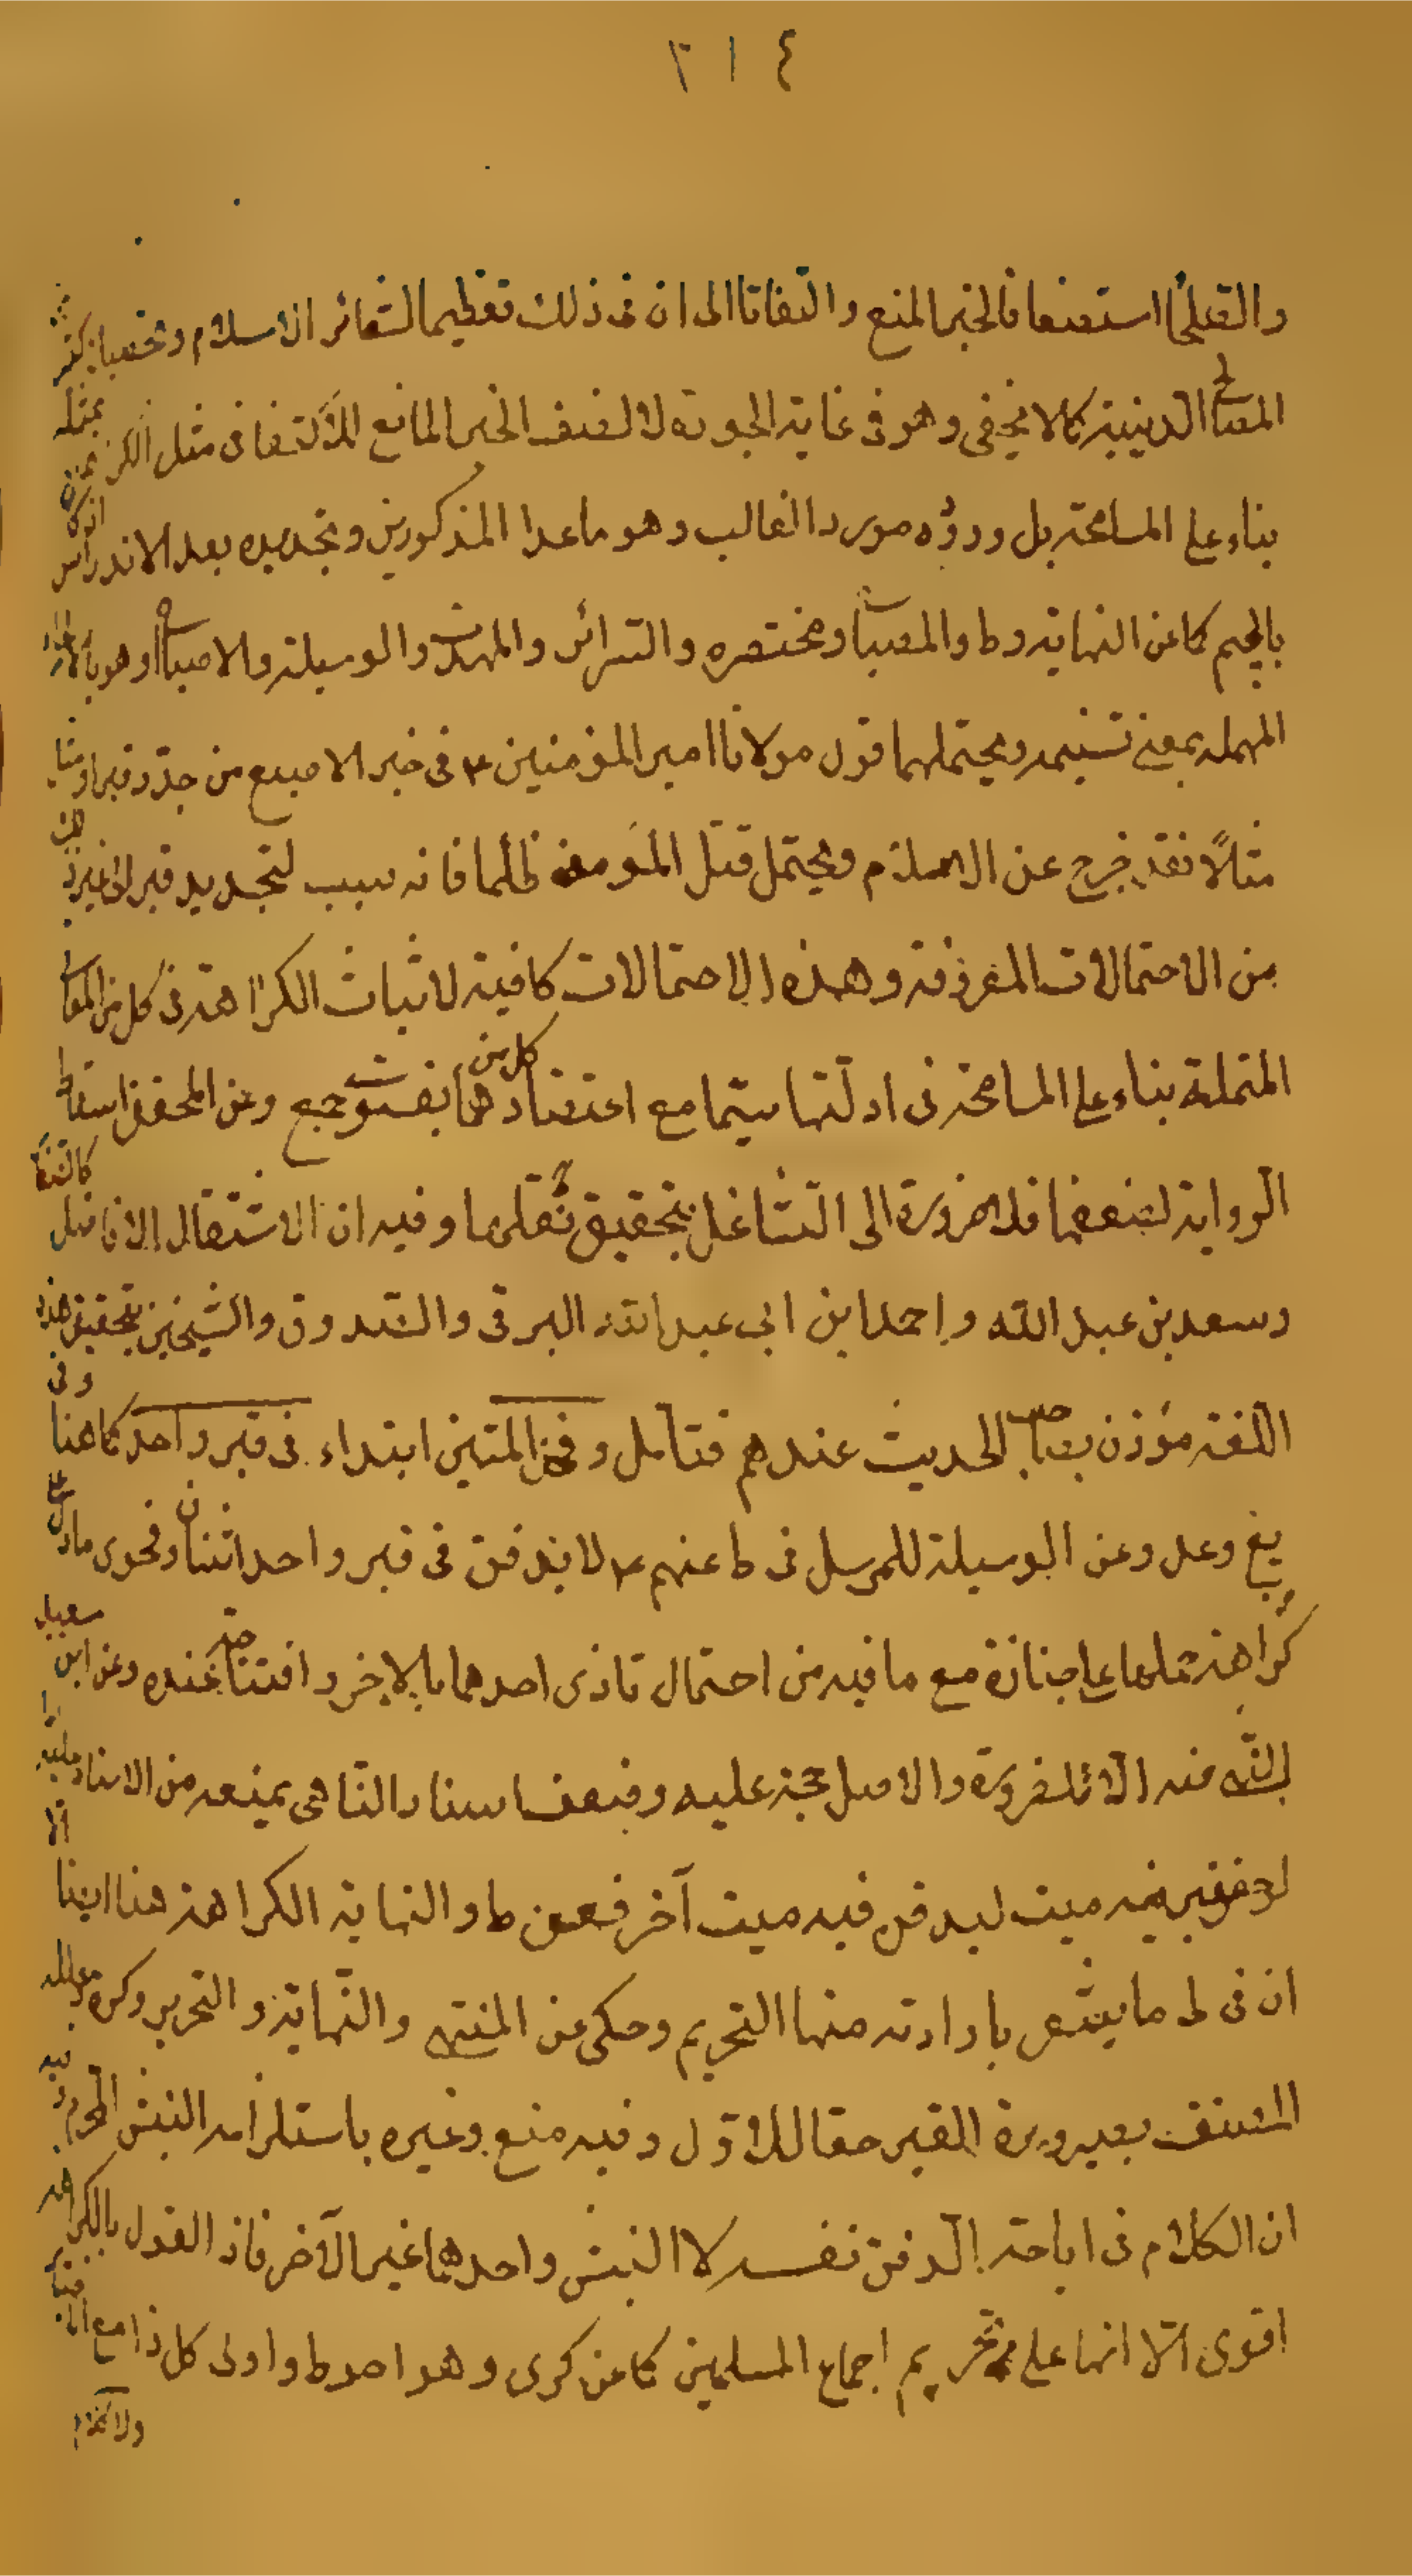 ٣١٤
والعلماء استضعافا لخبر المنع والتفاتا الى ان فى ذلك تعظيما لشعائر الاسلام وتحصيلا لكثير
المصالح الدينية كما لا يخفى وهو فى غاية الجودة لا لضعف الخبر المانع للاكتفا فى مثل الكراهة بمثله
بناء على المسامحة بل وروده مورد الغالب وهو ما عدا المذكورين وتجديده بعد الاندراس
بالجيم كما عن النهاية وط والمصباح ومختصره والسرائر والمهذب والوسيلة والاصباح او هو بالحاء
المهملة بمعنى تسنيمه ويحتملهما قول مولانا امير المؤمنين ع فى خبر الاصبغ من جدد قبرا او مثل
مثالا فقد خرج عن الاسلام ويحتمل قتل المؤمن ظلما فانه سبب لتجديد قبر الى غير ذلك
من الاحتمالات المعروفة وهذه الاحتمالات كافية لاثبات الكراهة فى كل من المعانى
المحتملة بناء على المسامحة فى ادلتها سيما مع اعتضاد كل منها بفتوى جمع وعن المحقق اسقاط
الرواية لضعفها فلا ضرورة الى التشاغل بتحقيق نقلها وفيه ان اشتغال الافاضل كالصفار
وسعد بن عبد الله واحمد ابن ابى عبد الله البرقى والصدوق والشيخين بتحقيق هذه
اللفظة مؤذن بصحة الحديث عندهم فتامل ودفن الميتين ابتداء فى قبر واحد كما هنا وفى
يع وعد وعن الوسيلة للمرسل فى ط عنهم ع لا يدفن فى قبر واحد اثنان وفحوى ما دل على
كراهة حملهما على جنازة مع ما فيه من احتمال تاذى احدهما بالاخر وافتضاحه عنده وعن ابن سعيد
النهى عنه الا لضرورة والاصل حجة عليه وضعف اسناد الناهى يمنعه من الاستناد اليه
لو حفر قبر فيه ميت ليدفن فيه ميت آخر فعن ط والنهاية الكراهة هنا ايضا الا
ان فى ط ما يشعر بارادته منها التحريم وحكى عن المنتهى والنهاية والتحرير وكرة معللة
المصنف بصيرورة القبر حقا للاول وفيه منع وغيره باستلزامه النبش المحرم وفيه
ان الكلام فى اباحة الدفن نفسه لا النبش واحدهما غير الآخر فاذ القول بالكراهة
اقوى الا انها على تحريم اجماع المسلمين كما عن كرى وهو احوط واولى كل ذا مع
ولا